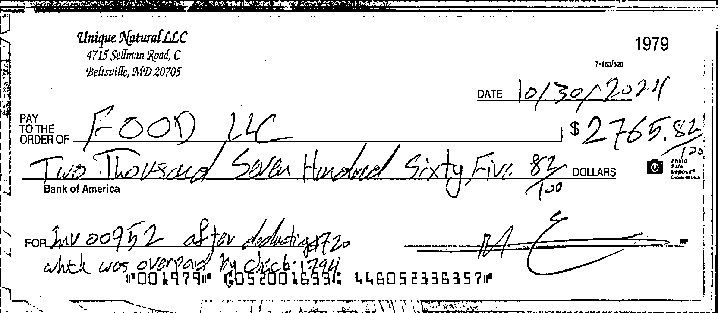 Unique Natural LLC
4715 Sellman Road, C
Beltsville, MD 20705
1979
DATE 10/30/2024
PAY TO THE ORDER OF FOOD LLC $ 2765.82/100
Two Thousand Seven Hundred Sixty Five 82/100 DOLLARS
Bank of America
FOR Inv 00952 after deducting $720
which was overpaid by check: 1794
⑈001979⑈